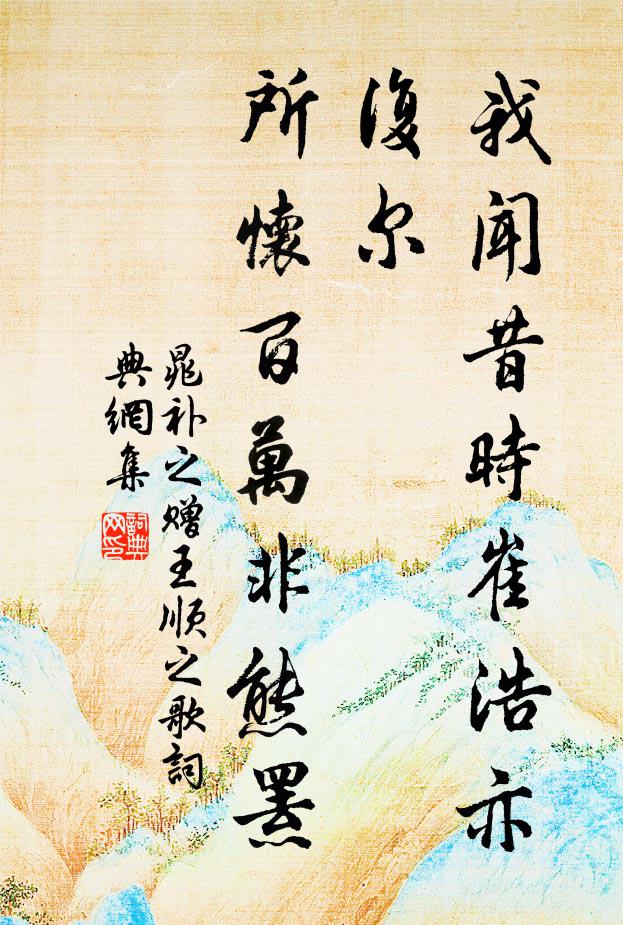 我闻昔時崔浩亦
復尔
所懷百萬非熊羆
晁补之赠王順之歌詞
典網集
詞典
网印